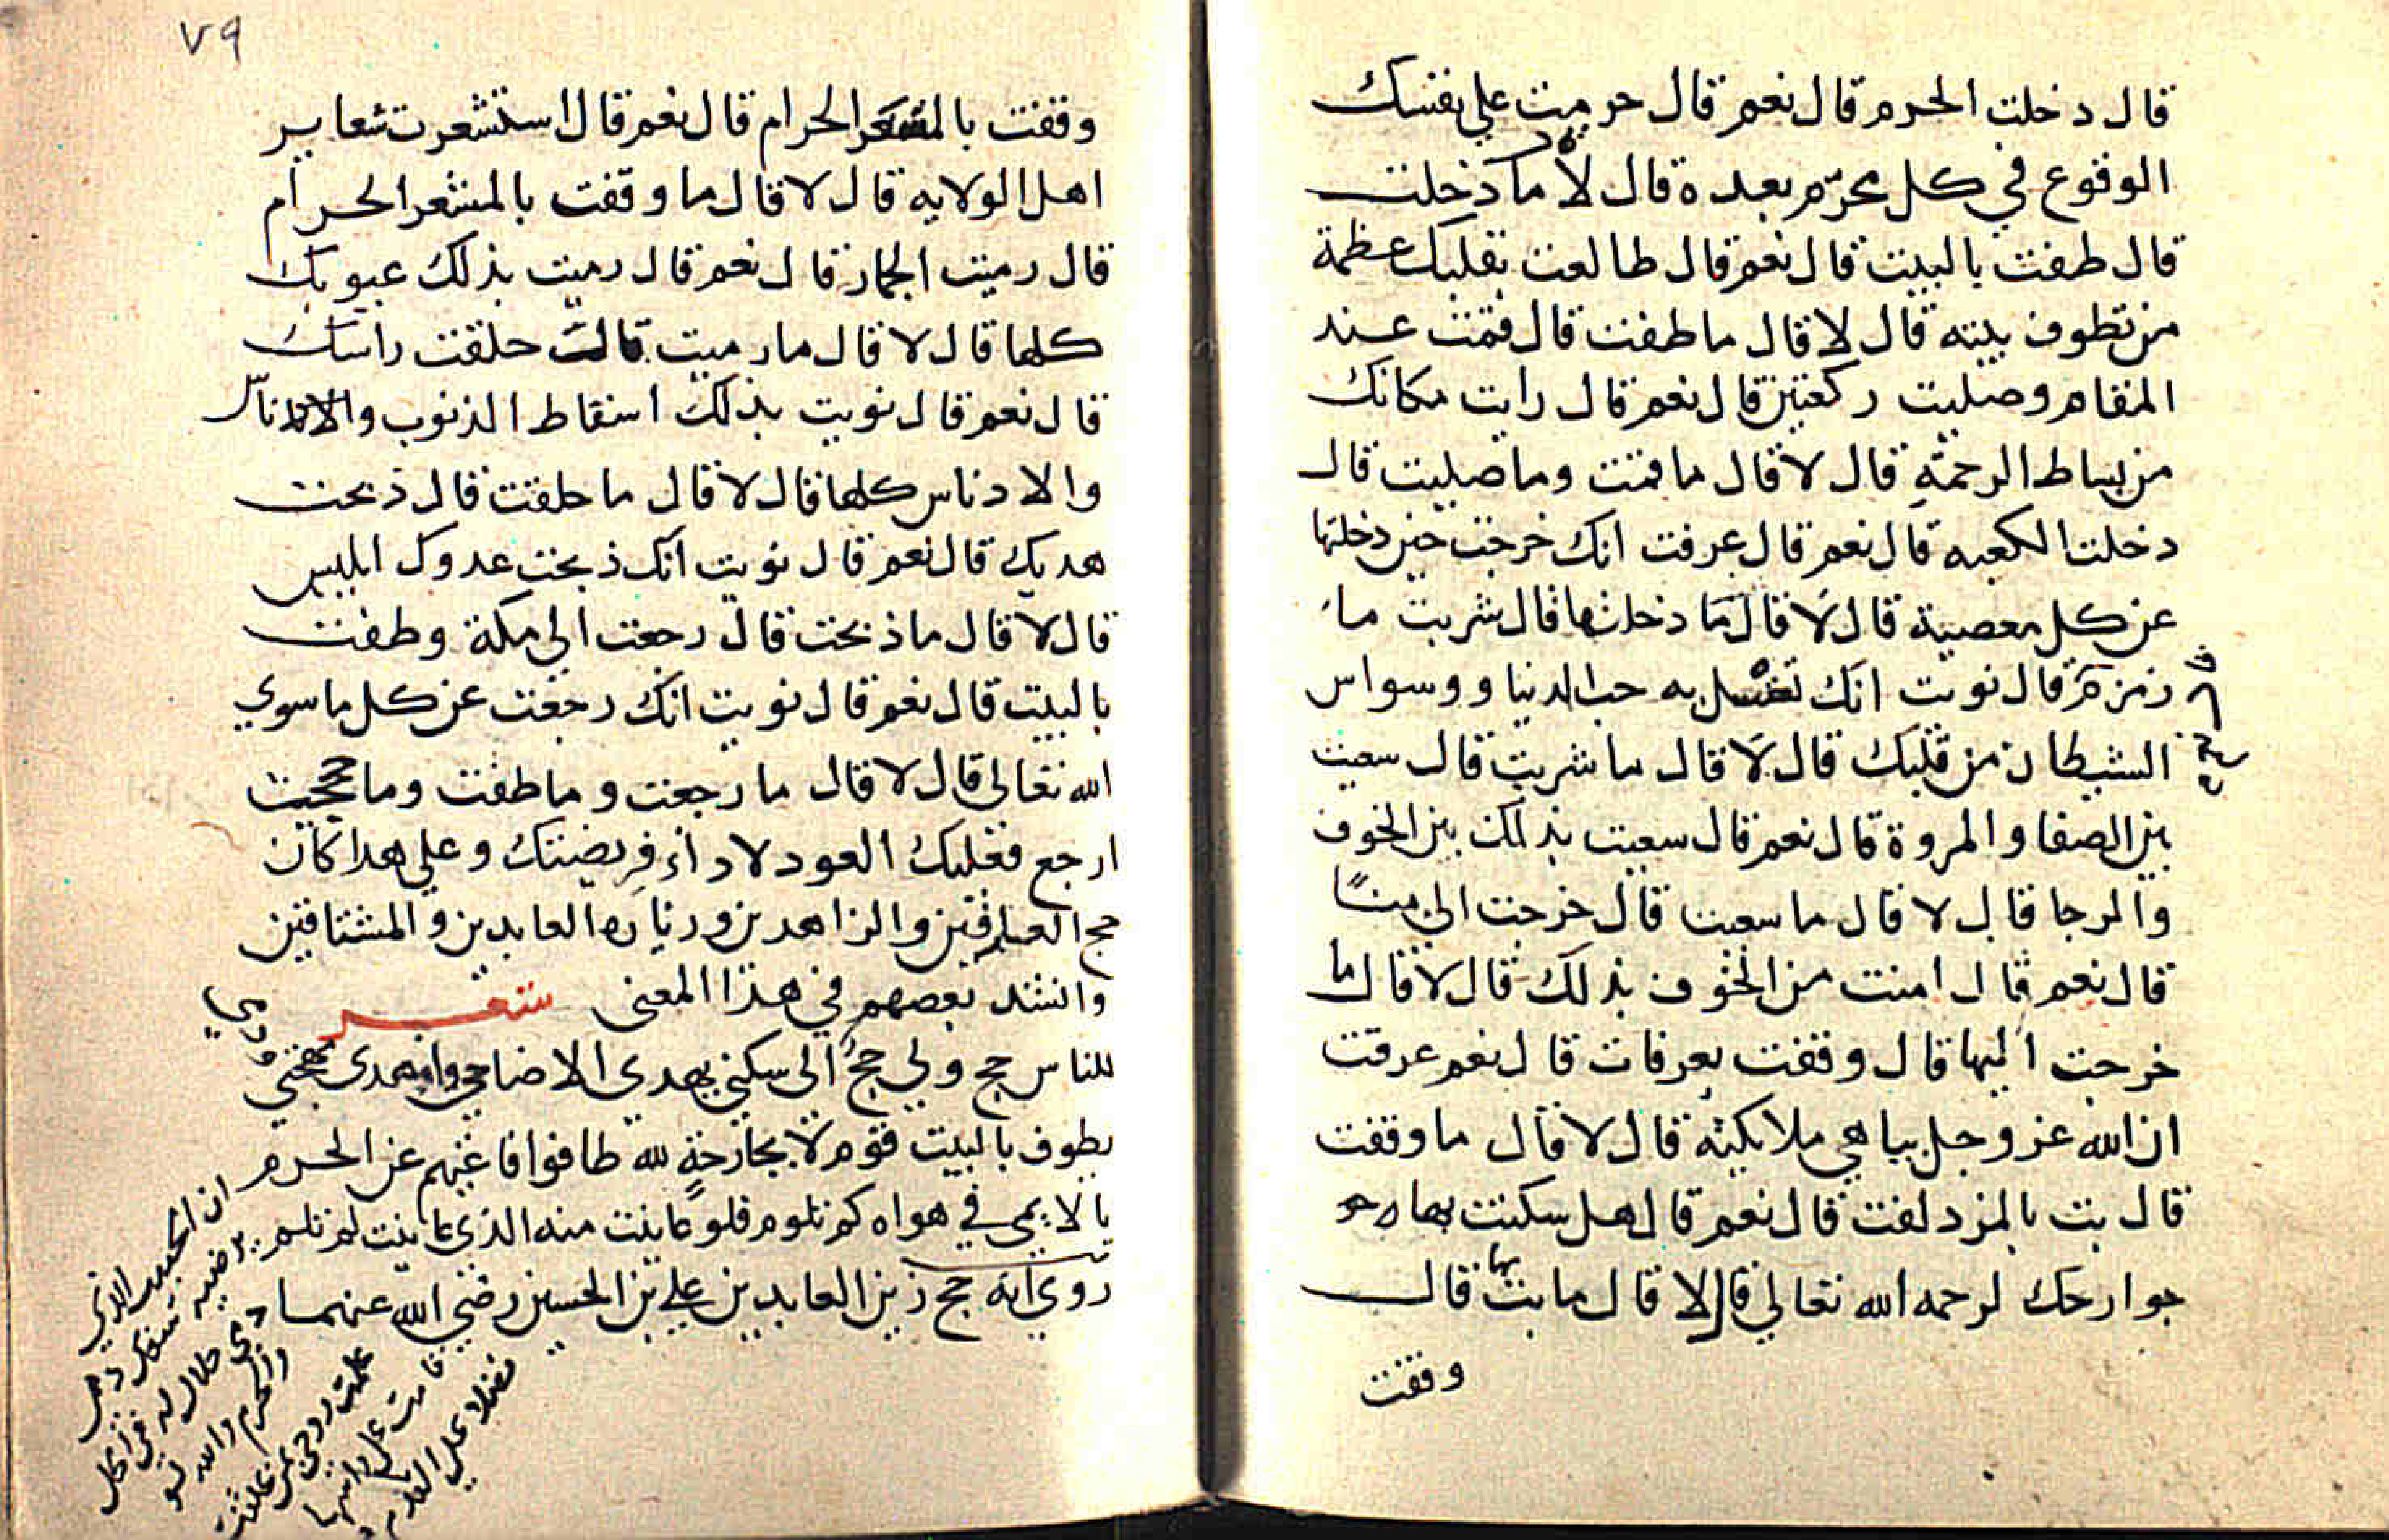 قال دخلت الحرم قال نعم قال حرمت على نفسك
الوقوع في كل محرّم بعده قال لا ما دخلت
قال طفت بالبيت قال نعم قال طالعت بقلبك عظمة
من تطوف ببيته قال لا قال ما طفت قال قمت عند
المقام وصليت ركعتين قال نعم قال رايت مكانك
من بساط الرحمة قال لا قال ما قمت وما صليت قال
دخلت الكعبه قال نعم قال عرفت انك خرجت حين دخلتها
عن كل معصية قال لا قال ما دخلتها قال شربت ما
زمزم قال نويت انك تغسل به حب الدنيا ووسواس
الشيطان من قلبك قال لا قال ما شربت قال سعيت
بين الصفا والمروة قال نعم قال سعيت بذلك بين الخوف
والرجا قال لا قال ما سعيت قال خرجت الى منًا
قال نعم قال امنت من الخوف بذلك قال لا قال ما
خرجت اليها قال وقفت بعرفات قال نعم عرفت
ان الله عز وجل يباهي ملايكته قال لا قال ما وقفت
قال بت بالمزدلفت قال نعم قال هل سكنت بها
جوارحك لرحمه الله تعالى قال لا قال ما بت بها قال
وقفت
٧٩
وقفت بالمشعر الحرام قال نعم قال استشعرت شعاير
اهل الولايه قال لا قال ما وقفت بالمشعر الحرام
قال رميت الجمار قال نعم قال رميت بذلك عيوبك
كلها قال لا قال ما رميت قالت حلقت راسك
قال نعم قال نويت بذلك اسقاط الذنوب
والادناس كلها قال لا قال ما حلقت قال ذبحت
هديك قال نعم قال نويت انك ذبحت عدوك ابليس
قال لا قال ما ذبحت قال رجعت الى مكة وطفت
بالبيت قال نعم قال نويت انك رجعت عن كل ما سوي
الله تعالى قال لا قال ما رجعت وما طفت وما حججت
ارجع فعليك العود لاداء فريضتك وعلى هدا كان
حج العارفين والزاهدين وزيارة العابدين والمشتاقين
وانشد بعضهم في هذا المعنى شعر
للناس حج ولي حجٌ الى سكني يهدي الاضاحي واهدى مهجتي ودمي
يطوف بالبيت قوم لا بجارحةٍ لله طافوا فاغنيهم عن الحرم
يا لايمي في هواه كم تلوم فلو عاينت منه الذي عاينت لم تلم
روي انه حج زين العابدين علي بن الحسين رضي الله عنهما
ان الحبيب الذي
يرضيه سفك دمي
دمي حلال له في الحل
والحرم والله لو
علمت روحي بمن علقت
قامت على راسها
فضلا على القدم